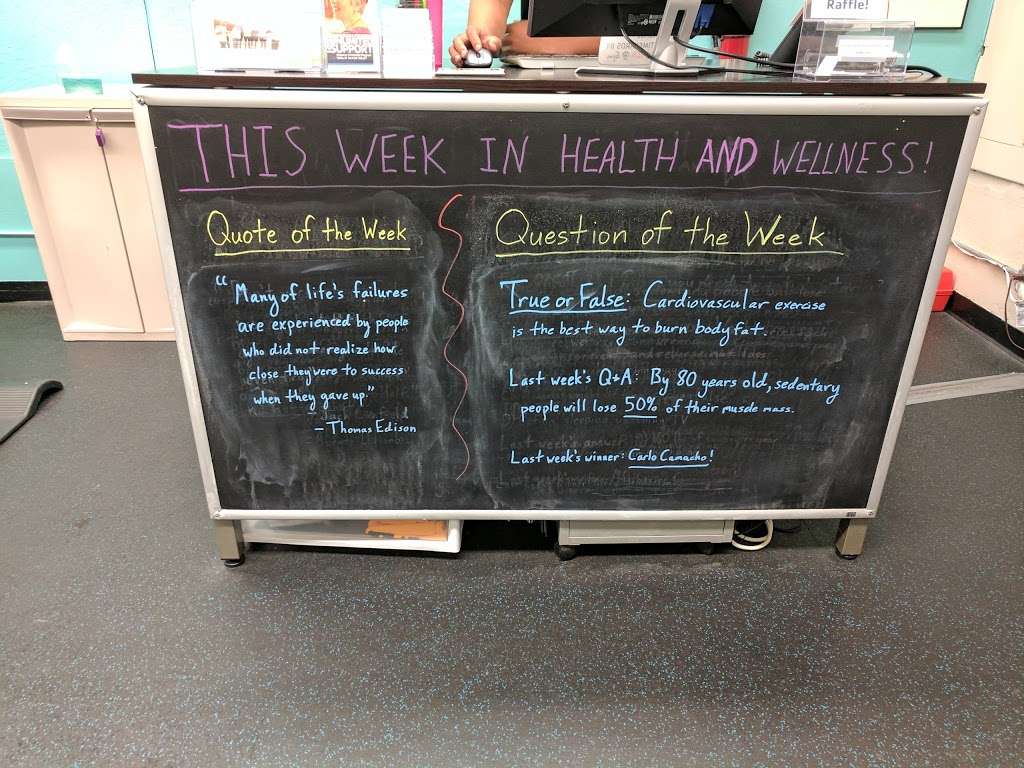 Raffle!
SUPPORT
THIS WEEK IN HEALTH AND WELLNESS!
Quote of the Week
"Many of life's failures
are experienced by people
who did not realize how
close they were to success
when they gave up."
- Thomas Edison
Question of the Week
True or False: Cardiovascular exercise
is the best way to burn body fat.
Last week's Q+A: By 80 years old, sedentary
people will lose 50% of their muscle mass.
Last week's winner: Carlo Camacho!